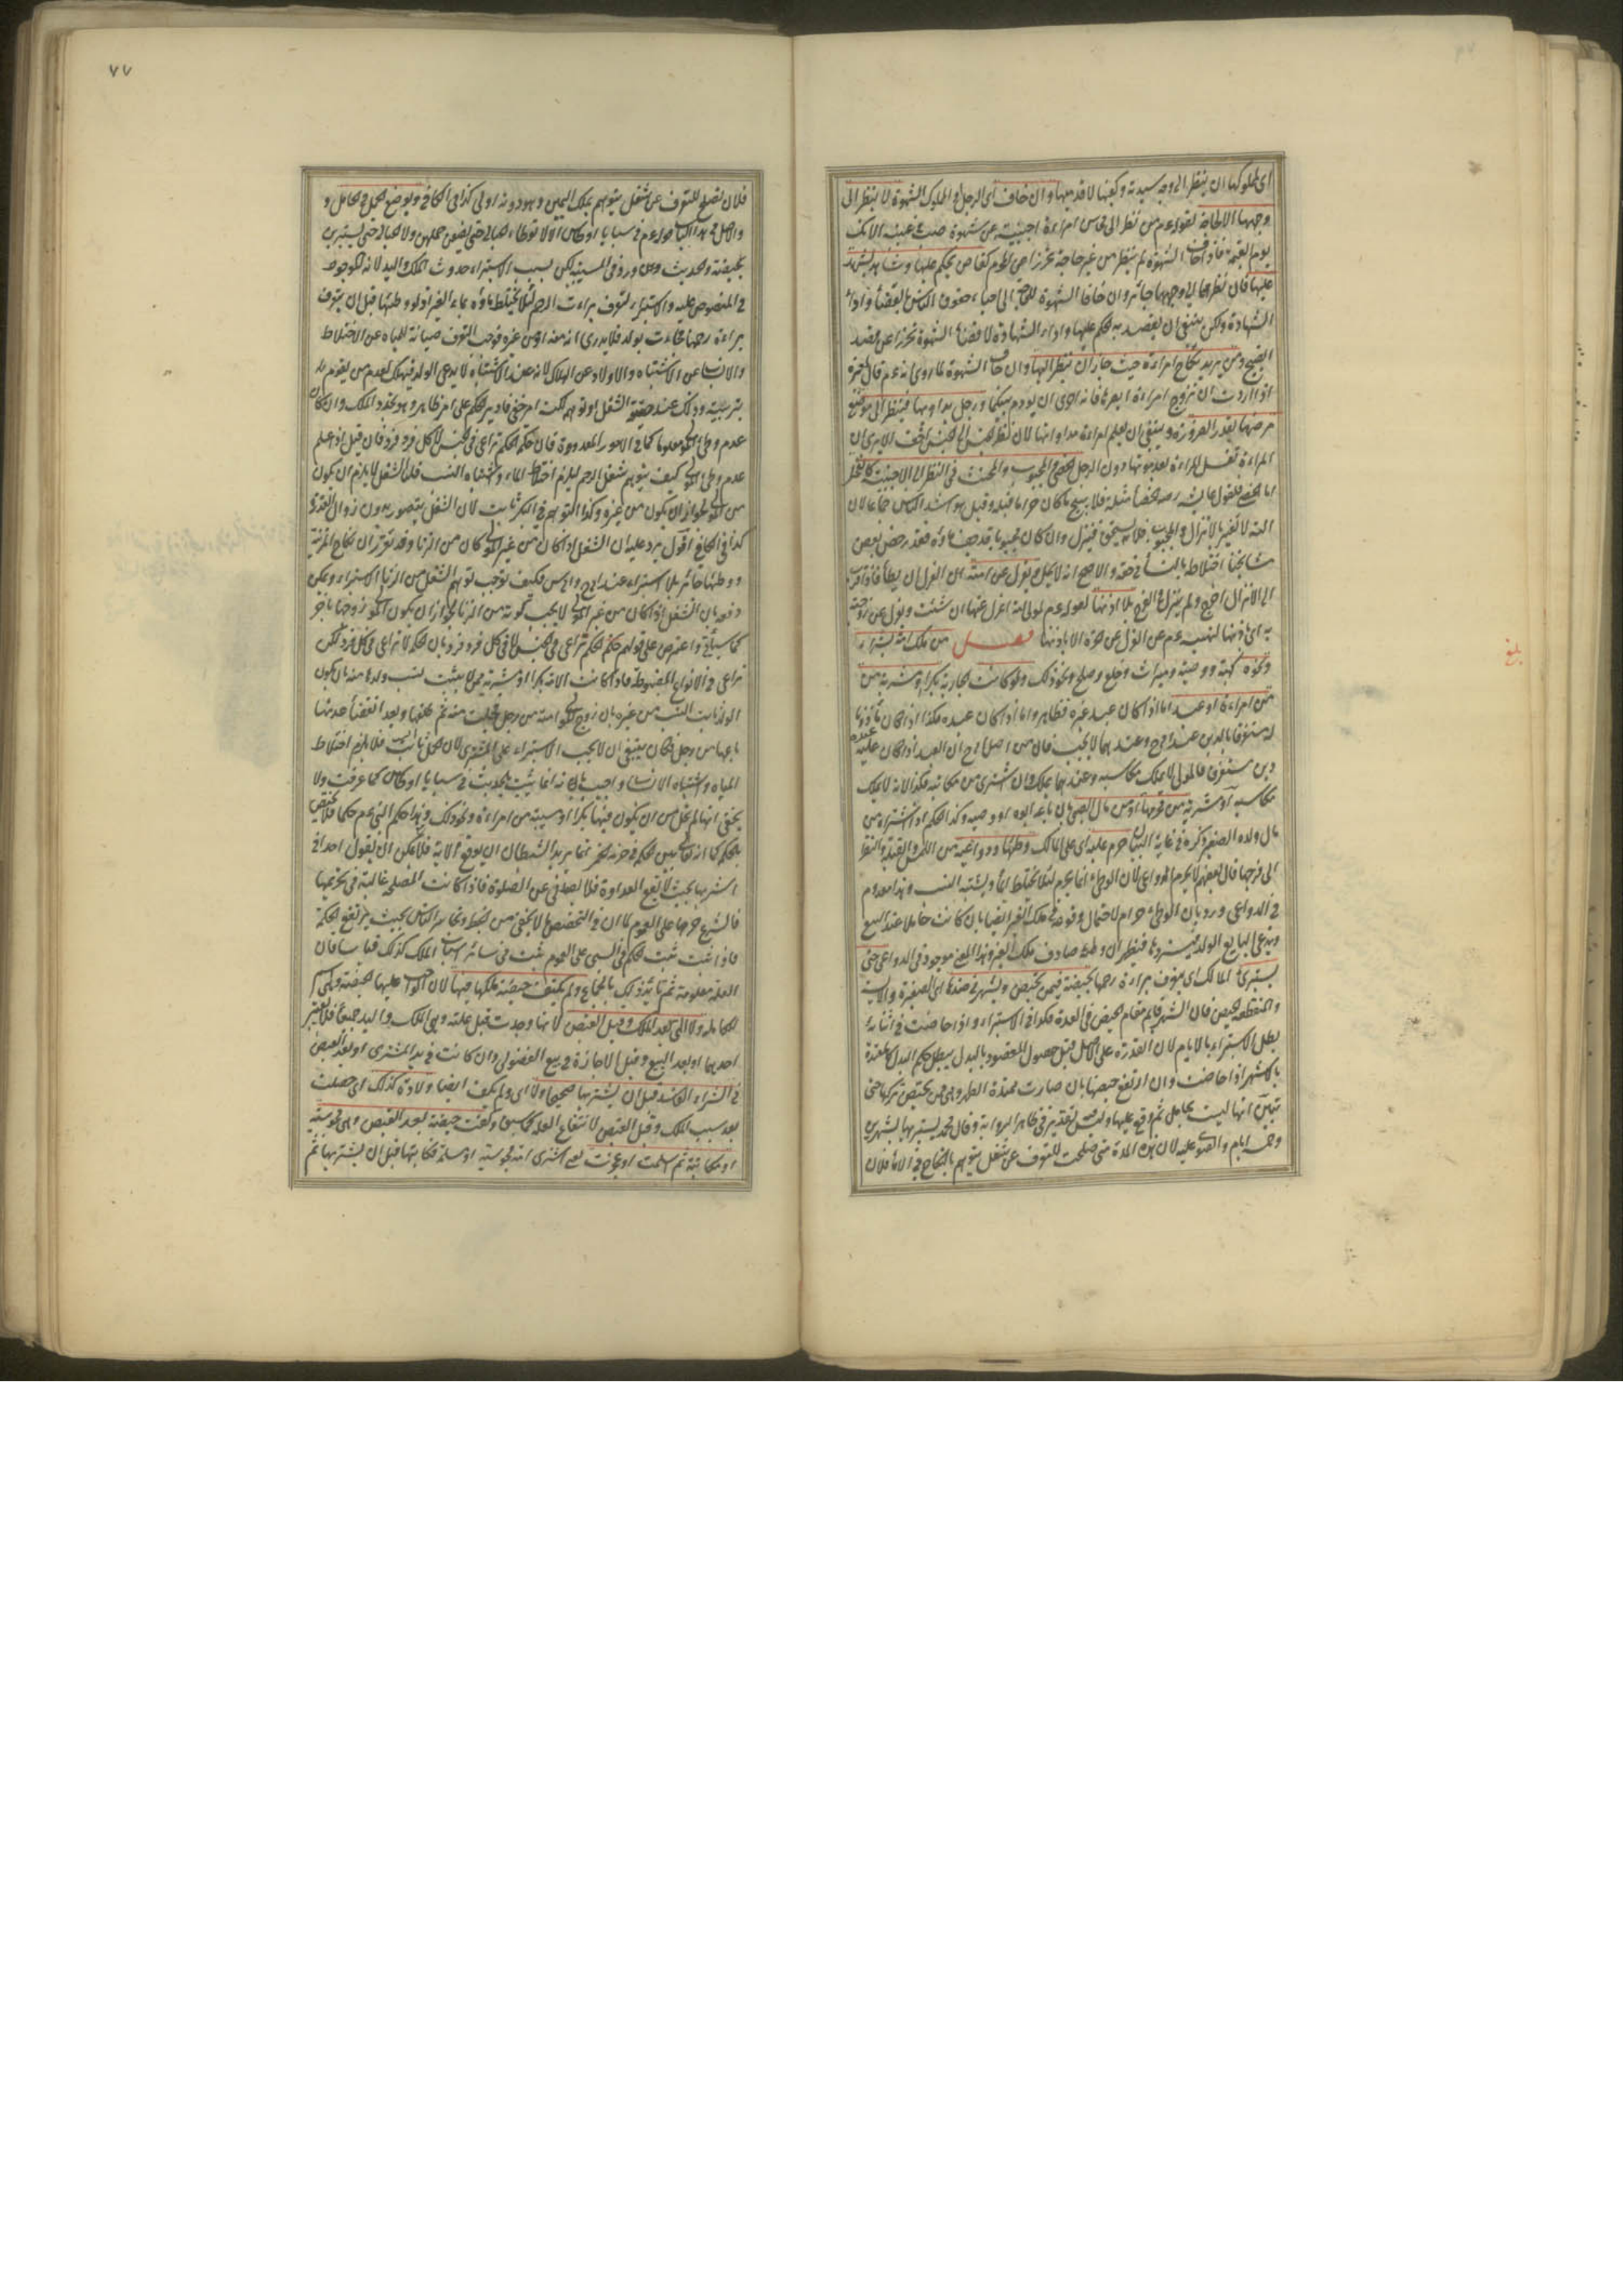 اى لمملوكها ان ينظر الى وجه سيدته وكفيها لا قدميها وان خاف اى الرجل او المملوك الشهوة لا ينظر الى
وجهها الا لحاجة لقوله عم من نظر الى محاسن امراءة اجنبية عن شهوة صب فى عينيه الآنك
يوم القيمة فاذا خاف الشهوة لم ينظر من غير حاجة تحرزا عن المحرم كقاض يحكم عليها وشاهد يشهد
عليها فان نظرهما الى وجهها جائز وان خافا الشهوة للحاجة الى احياء حقوق الناس بالقضاء واداء
الشهادة ولكن ينبغى ان يقصد به الحكم عليها واداء الشهادة لا قضاء الشهوة تحرزا عن قصد
القبيح ومن يريد نكاح امراءة حيث جاز ان ينظر اليها وان خاف الشهوة لما روى انه عم قال لمغيرة
اذا اردت ان تزوج امراءة ابصرها فانه احرى ان يودم بينكما ورجل يداويها فينظر الى موضع
مرضها بقدر الضرورة وينبغى ان يعلم امراءة مداواتها لان نظر الجنس الى الجنس اخف الا يرى ان
المراءة تغسل المراءة بعد موتها دون الرجل الخصى والمجبوب والمخنث فى النظر الى الاجنبية كالفحل
اما الخصى فلقول عائشة رضه الخصاء مثلة فلا يبيح ما كان حراما قبله وقيل هو اشد الناس جماعا لان
آلته لا تفتر بالانزال والمجبوب فلانه يسحق فينزل وان كان مجبوبا قد جف ماؤه فقد رخص بعض
مشايخنا اختلاطه بالنساء فى حقه والاصح انه لا يحل ويعزل عن امته العزل ان يطأ فاذا قرب
الى الانزال اخرج ولم ينزل فى الفرج بلا اذنها لقوله عم لمولى امة اعزل عنها ان شئت ويعزل عن زوجته
به اى باذنها لنهيه عم عن العزل عن الحرة الا باذنها فصل من ملك امة بشراء
ونحوه كهبة ووصية وميراث وخلع وصلح ونحو ذلك ولو كانت الجارية بكرا او مشرية من
من امراءة او عبد اما اذا كان عبد غيره فظاهر واما اذا كان عبده فكذا اذا كان ماذونا
له مستغرقا بالدين عند ابى ح وعندهما لا يجب فان من اصل ابى ح ان العبد اذا كان عليه
دين مستغرق فالمولى لا يملك مكاسبه وعندهما يملك وان اشترى من مكاتبه فكذا لانه لا يملك
مكاسبه او مشرية من محرمها او من مال الصبى بان باعه ابوه او وصيه وكذا الحكم اذا اشتراه من
مال ولده الصغير ذكره فى غاية البيان حرم عليه اى على المالك وطئها ودواعيه من اللمس والقبلة والنظر
الى فرجها قال بعضهم لا يحرم الدواعى لان الوطئ انما يحرم لئلا يختلط الماء ويشتبه النسب وهذا معدوم
فى الدواعى ورد بان الوطئ حرام لاحتمال وقوعه فى ملك الغير ايضا بان كانت حاملا عند البيع
ويدعى البايع الولد فيستردها فيظهر ان وطئه صادف ملك الغير وهذا المعنى موجود فى الدواعى حتى
يستبرئ المالك اى يتعرف براءة رحمها بحيضة فيمن تحيض وبشهر فى ضدها اى الصغيرة والآيسة
والمنقطعة الحيض فان الشهر قائم مقام الحيض فى العدة فكذا فى الاستبراء واذا حاضت فى اثنائه
بطل الاستبراء بالايام لان القدرة على الاصل قبل حصول المقصود بالبدل يبطل حكم البدل كالمعتدة
بالاشهر اذا حاضت وان ارتفع حيضها بان صارت ممتدة الطهر وهى ممن تحيض تركها حتى
تبين انها ليست بحامل ثم وقع عليها وليس فيه تقدير فى ظاهر الرواية وقال محمد يستبرئها بشهرين
وخمسة ايام والفتوى عليه لان هذه المدة متى صلحت للتعرف عن شغل يتوهم بالنكاح فى الاماء فلان
بلغ
٧٧
فلان تصلح للتعرف عن شغل يتوهم بملك اليمين وهو دونه اولى كذا فى الكافى وبوضع الحمل فى الحامل و
والاصل فى هذا الباب قوله عم فى سبايا اوطاس الا لا توطاء الحبالى حتى يضعن حملهن ولا الحيالى حتى يستبرين
بحيضة والحديث وان ورد فى السبية لكن بسبب الاستبراء حدوث الملك واليد لانه الموجود
فى المنصوص عليه والاستبراء لتعرف براءت الرحم لئلا يختلط ماؤه بماء الغير اذ لو وطئها قبل ان يتعرف
براءة رحمها فجاءت بولد فلا يدرى انه منه او من غيره فوجب التعرف صيانة للمياه عن الاختلاط
والانساب عن الاشتباه والاولاد عن الهلاك لانه عند الاشتباه لا يدعى الولد فيهلك لعدم من يقوم
بتربيته وذلك عند حقيقة الشغل او توهمه لكنه امر خفى فادير الحكم على امر ظاهر وهو تجدد الملك وان كان
عدم وطئ المولى معلوما كما فى الامور المعدودة فان حكمة الحكم تراعى فى الجنس لا كل فرد فرد فان قيل اذا علم
عدم وطئ المولى كيف يتوهم شغل الرحم ليلزم اختلاط الماء واشتباه النسب قلنا الشغل لا يلزم ان يكون
من المولى لجواز ان يكون من غيره وكذا التوهم فى البكر ثابت لان الشغل يتصور بدون زوال العذرة
كذا فى الكافى اقول يرد عليه ان الشغل اذا كان من غير المولى كان من الزنا وقد تقرر ان نكاح المزنية
ووطئها جائز بلا استبراء عند ابى ح وابى س فكيف توجب توهم الشغل من الزنا الاستبراء ويمكن
دفعه بان الشغل اذا كان من غير المولى لا يجب كونه من الزنا لجواز ان يكون المولى زوجها بآخر
كما سيأتى واعترض على قولهم حكمة الحكم تراعى فى الجنس لا فى كل فرد فرد بان الحكمة لا تراعى فى كل فرد لكن
تراعى فى الانواع المضبوطة فاذا كانت الامة بكرا او مشرية ممن لا يثبت نسب ولدها منه بان يكون
الولد ثابت النسب من غيره بان زوج المولى امته من رجل فحبلت منه ثم طلقها وبعد انقضاء عدتها
باعها من رجل فكان ينبغى ان لا يجب الاستبراء على المشترى لان الحمل ثابت النسب فلا يلزم اختلاط
المياه واشتباه الانساب واجيب بانه انما يثبت بالحديث فى سبايا اوطاس كما عرفت ولا
يخفى انها لم تخل من ان يكون فيها بكرا او مسبية من امراءة ونحو ذلك وهذا حكم النبى عم حكما فلا يختص
بالحكمة كما انه تعالى بين الحكمة فى حرمة الخمر انما يريد الشيطان ان يوقع الآية فلا يمكن ان يقول احد انى
اشربها بحيث لا يقع العداوة فلا يصدنى عن الصلوة فاذا كانت المصلحة غالبة فى تحريمها
فالشرع حرمها على العموم لما ان فى التخصيص ما لا يخفى من الخبط وتجاسر الناس بحيث يرتفع الحكمة
فاذا ثبت ثبت الحكم فى السبى على العموم ثبت فى سائر اسباب الملك كذلك قياسا فان
العلة معلومة ثم تايد ذلك بالاجماع ولم يكتف بحيضة ملكها فيها لان الواجب عليها الحيضة وهى اسم
للكاملة ولا التى بعد الملك وقبل القبض لانها وجدت قبل علته وهى الملك واليد جميعا فلا يعتبر
احدهما او بعد البيع وقبل الاجازة فى بيع الفضولى وان كانت فى يد المشترى او بعد القبض
فى الشراء الفاسد قبل ان يشتريها صحيحا ولا اى ولم يكف ايضا ولادة كذلك اى حصلت
بعد سبب الملك وقبل القبض لانتفاء العلة كما سبق وكفت حيضة بعد القبض وهى مجوسية
او مكاتبة ثم اسلمت او عجزت يعنى اشترى امة مجوسية او مسلمة فكاتبها قبل ان يستبريها ثم